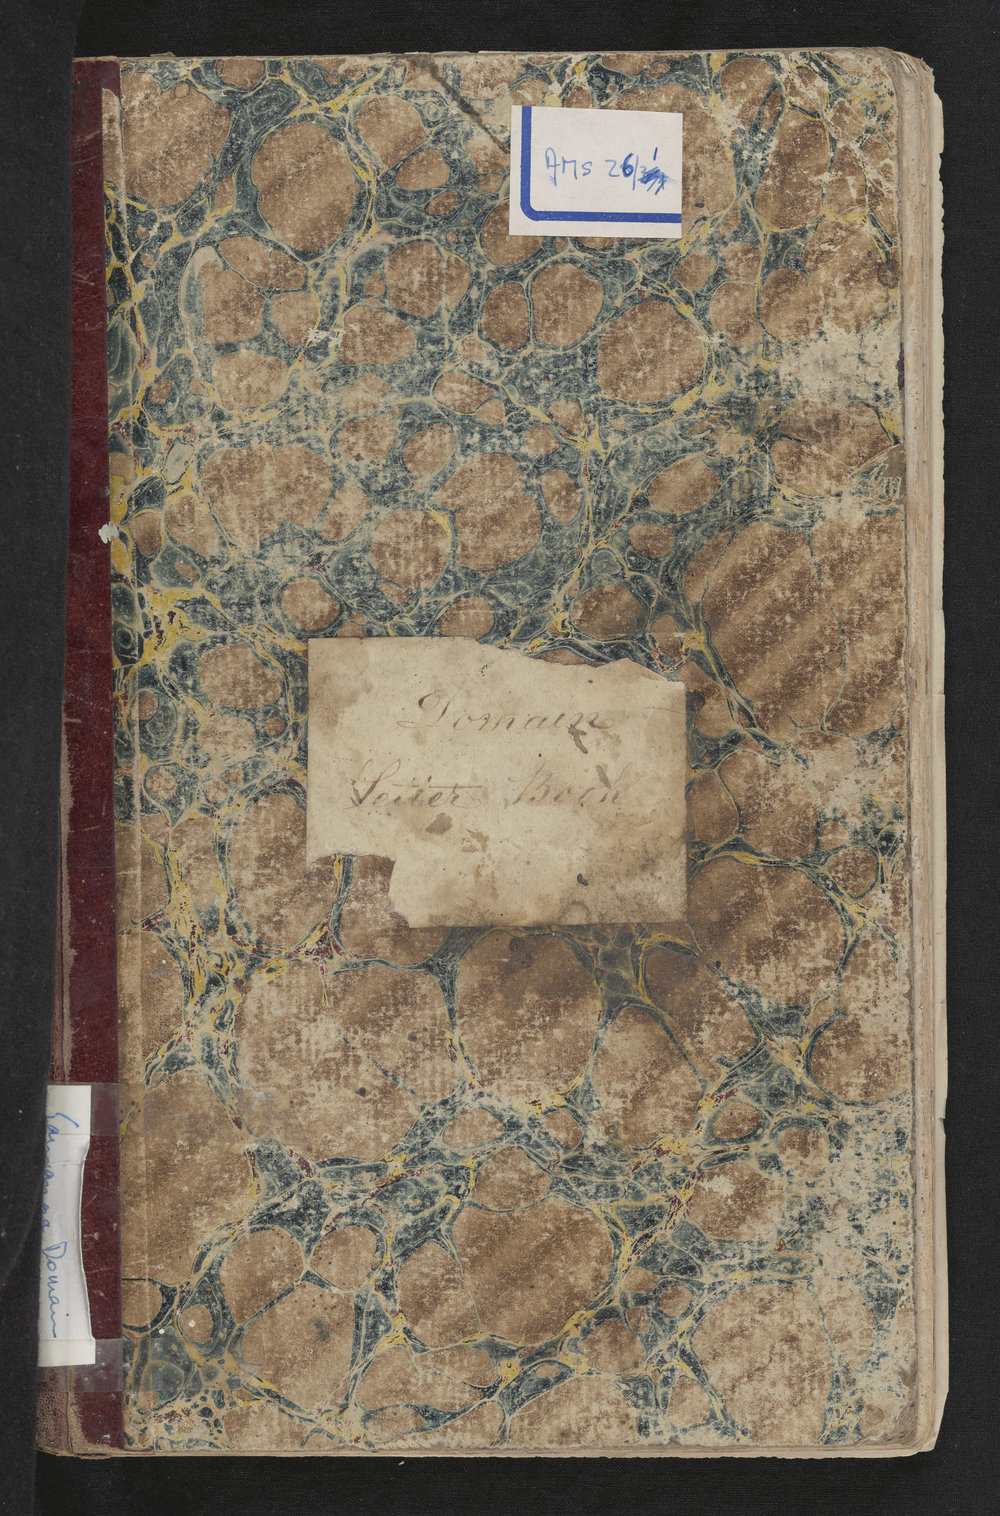 AMS 26/1
Domain
Letter Book
Domain